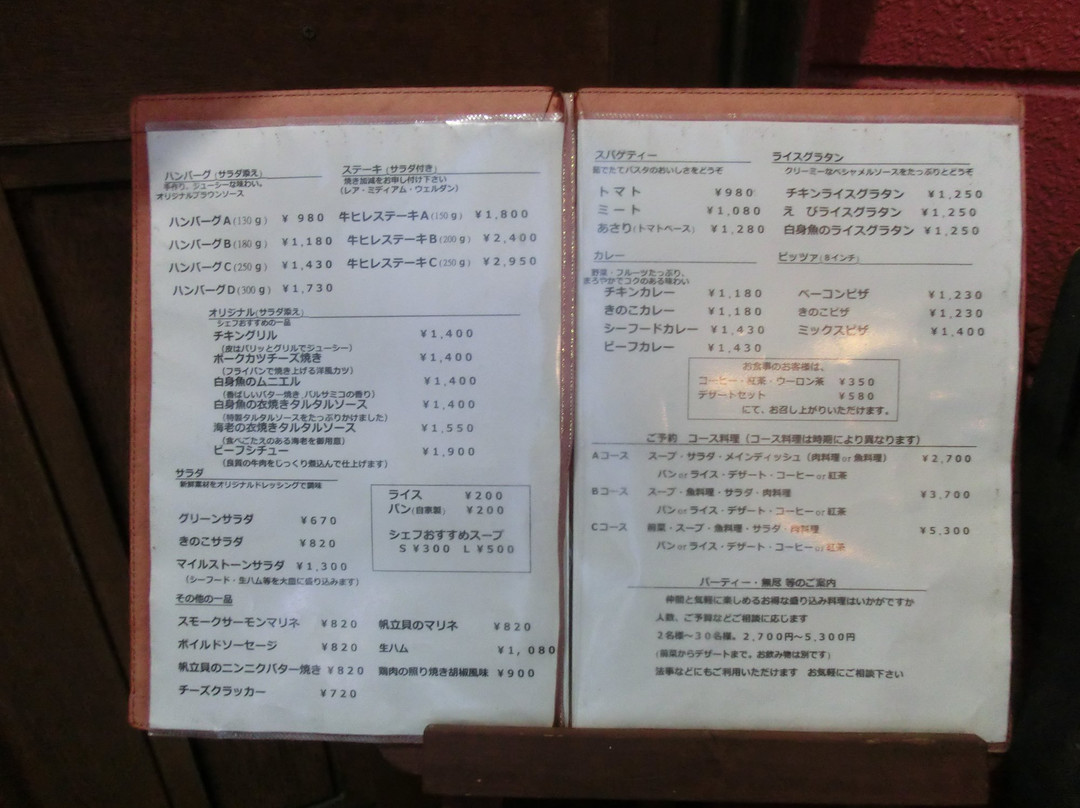 ハンバーグ (サラダ添え)
手作り、ジューシーな味わい。
オリジナルブラウンソース
ハンバーグA(130g) ¥ 980
ハンバーグB(180g) ¥1,180
ハンバーグC(250g) ¥1,430
ハンバーグD(300g) ¥1,730
ステーキ (サラダ付き)
焼き加減をお申し付け下さい
(レア・ミディアム・ウェルダン)
牛ヒレステーキA(150g) ¥1,800
牛ヒレステーキB(200g) ¥2,400
牛ヒレステーキC(250g) ¥2,950
オリジナル(サラダ添え)
シェフおすすめの一品
チキングリル ¥1,400
(皮はパリッとグリルでジューシー)
ポークカツチーズ焼き ¥1,400
(フライパンで焼き上げる洋風カツ)
白身魚のムニエル ¥1,400
(香ばしいバター焼き バルサミコの香り)
白身魚の衣焼きタルタルソース ¥1,400
(特製タルタルソースをたっぷりかけました)
海老の衣焼きタルタルソース ¥1,550
(食べごたえのある海老を御用意)
ビーフシチュー ¥1,900
(良質の牛肉をじっくり煮込んで仕上げます)
サラダ
新鮮素材をオリジナルドレッシングで調味
グリーンサラダ ¥670
きのこサラダ ¥820
マイルストーンサラダ ¥1,300
(シーフード・生ハム等を大皿に盛り込みます)
ライス ¥200
パン(自家製) ¥200
シェフおすすめスープ
S ¥300 L ¥500
その他の一品
スモークサーモンマリネ ¥820
ボイルドソーセージ ¥820
帆立貝のニンニクバター焼き ¥820
チーズクラッカー ¥720
帆立貝のマリネ ¥820
生ハム ¥1,080
鶏肉の照り焼き胡椒風味 ¥900
スパゲティー
茹でたてパスタのおいしさをどうぞ
トマト ¥980
ミート ¥1,080
あさり(トマトベース) ¥1,280
ライスグラタン
クリーミーなベシャメルソースをたっぷりとどうぞ
チキンライスグラタン ¥1,250
え びライスグラタン ¥1,250
白身魚のライスグラタン ¥1,250
カレー
野菜・フルーツたっぷり、
まろやかでコクのある味わい
チキンカレー ¥1,180
きのこカレー ¥1,180
シーフードカレー ¥1,430
ビーフカレー ¥1,430
ピッツァ(8インチ)
ベーコンピザ ¥1,230
きのこピザ ¥1,230
ミックスピザ ¥1,400
お食事のお客様は、
コーヒー・紅茶・ウーロン茶 ¥350
デザートセット ¥580
にて、お召し上がりいただけます。
ご予約 コース料理(コース料理は時期により異なります)
Aコース スープ・サラダ・メインディッシュ(肉料理or魚料理) ¥2,700
パンorライス・デザート・コーヒーor紅茶
Bコース スープ・魚料理・サラダ・肉料理 ¥3,700
パンorライス・デザート・コーヒーor紅茶
Cコース 前菜・スープ・魚料理・サラダ・肉料理 ¥5,300
パンorライス・デザート・コーヒーor紅茶
パーティー・無尽 等のご案内
仲間と気軽に楽しめるお得な盛り込み料理はいかがですか
人数、ご予算などご相談に応じます
2名様~30名様。2,700円~5,300円
(前菜からデザートまで。お飲み物は別です)
法事などにもご利用いただけます お気軽にご相談下さい